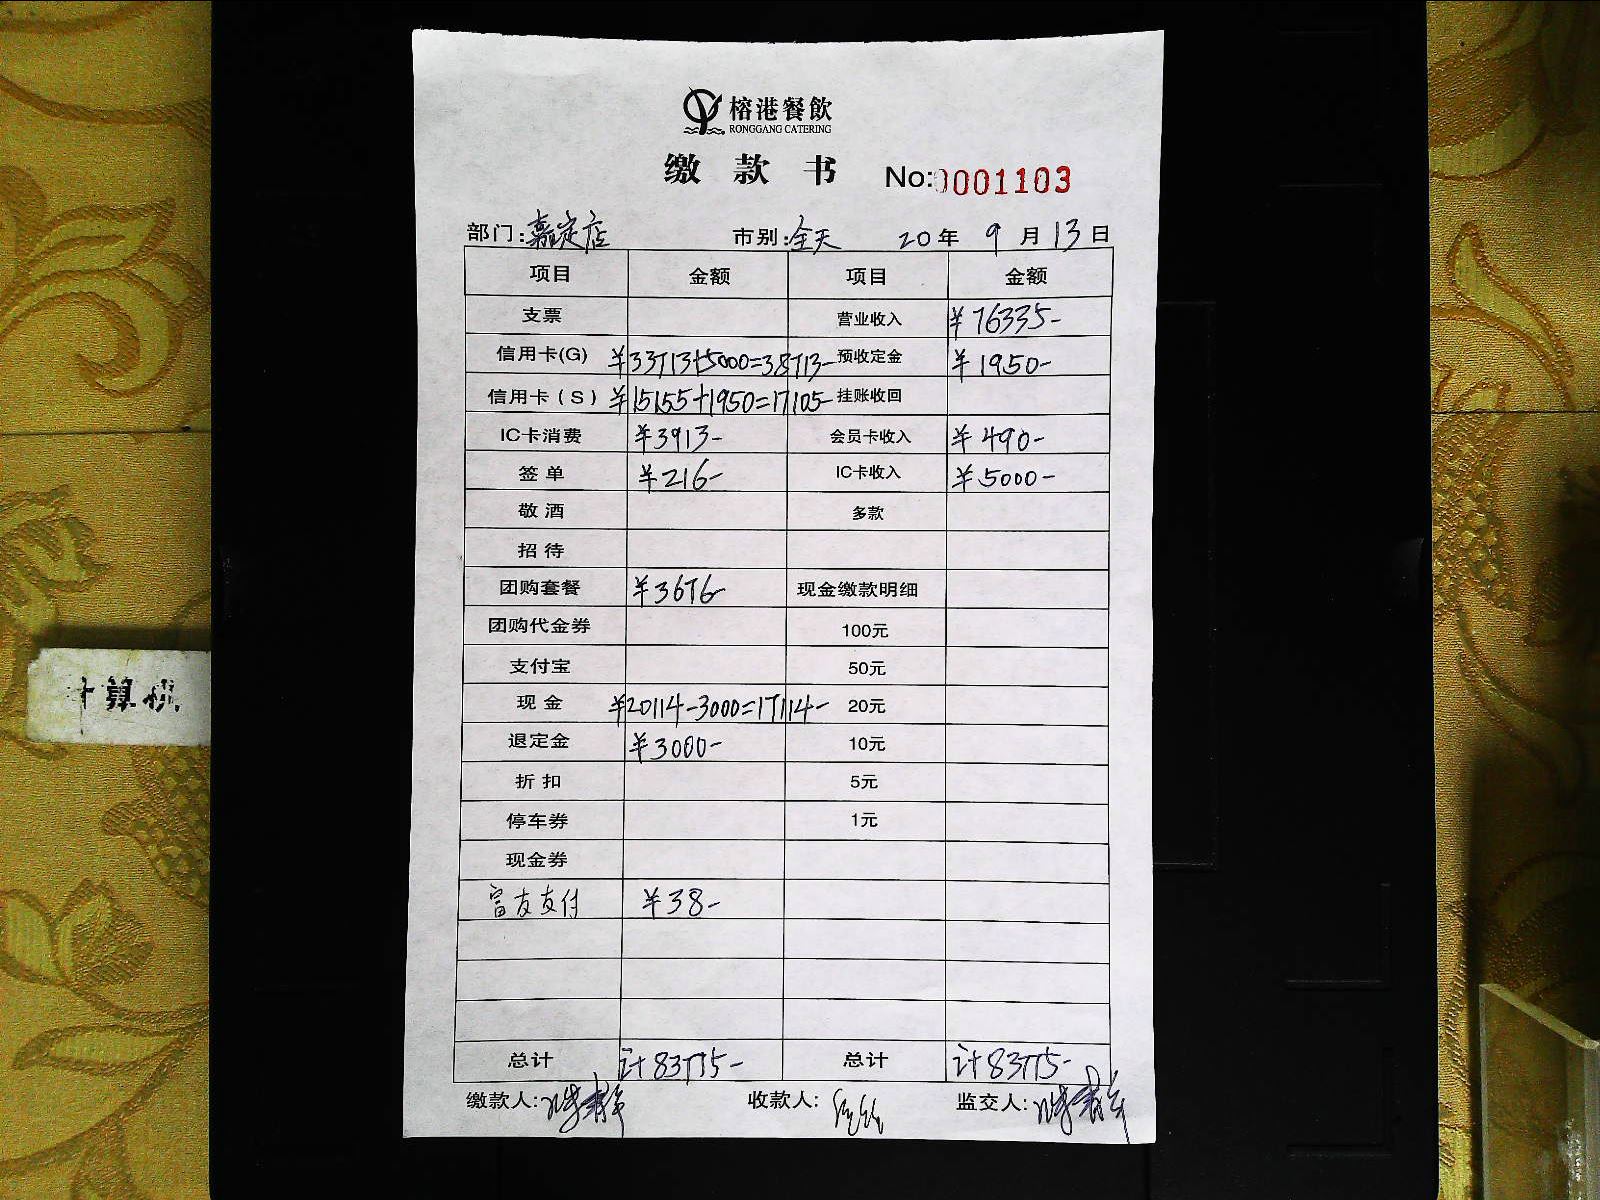 榕港餐飲
RONGGANG CATERING
缴款书 No:0001103
部门:嘉定店 市别:全天 20年 9月 13日
项目 金额 项目 金额
支票 营业收入 ¥76335-
信用卡(G) ¥33713+5000=38713- 预收定金 ¥1950-
信用卡(S) ¥15155+1950=17105- 挂账收回
IC卡消费 ¥3913- 会员卡收入 ¥490-
签单 ¥216- IC卡收入 ¥5000-
敬酒 多款
招待
团购套餐 ¥3676- 现金缴款明细
团购代金券 100元
支付宝 50元
现金 ¥20114-3000=17114- 20元
退定金 ¥3000- 10元
折扣 5元
停车券 1元
现金券
富友支付 ¥38-
总计 计83775- 总计 计83775-
缴款人: 收款人: 监交人: